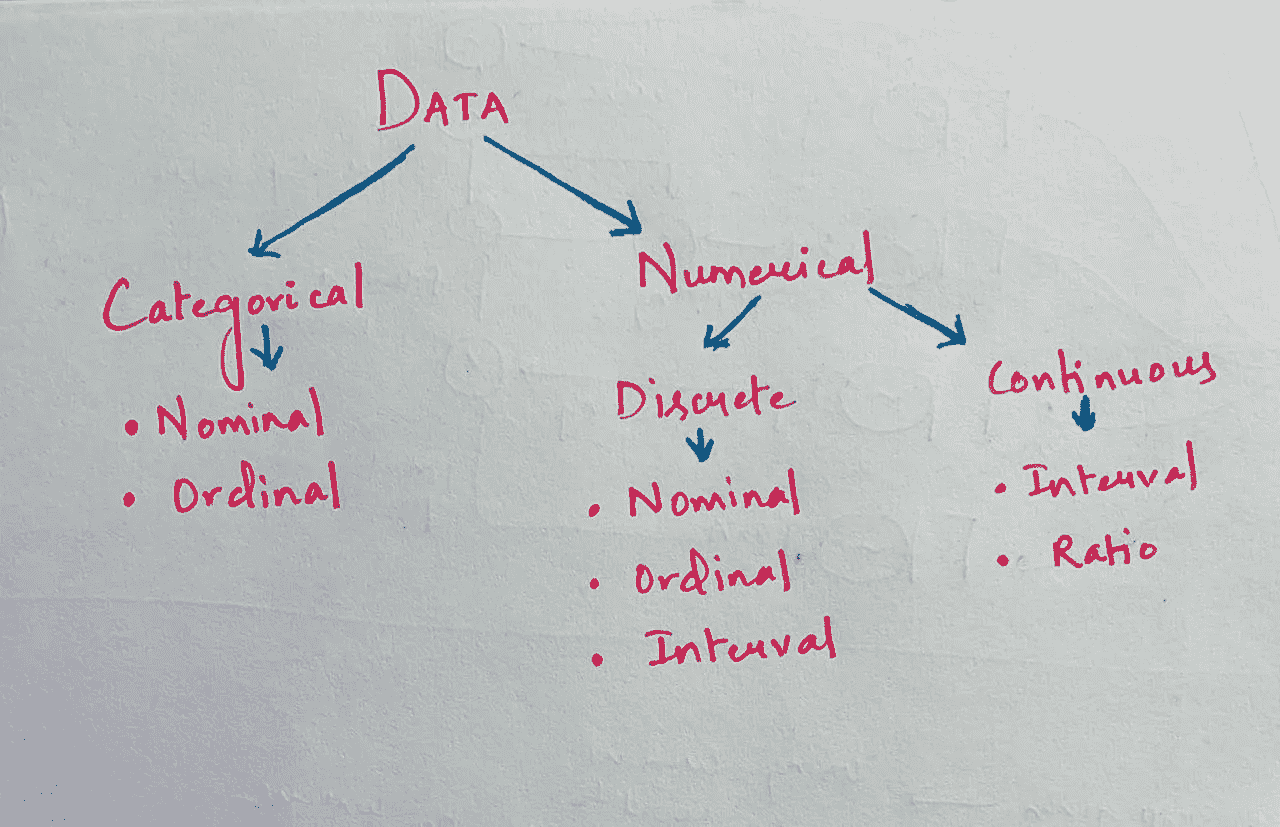 DATA
Categorical
• Nominal
• Ordinal
Numerical
Discrete
• Nominal
• Ordinal
• Interval
Continuous
• Interval
• Ratio